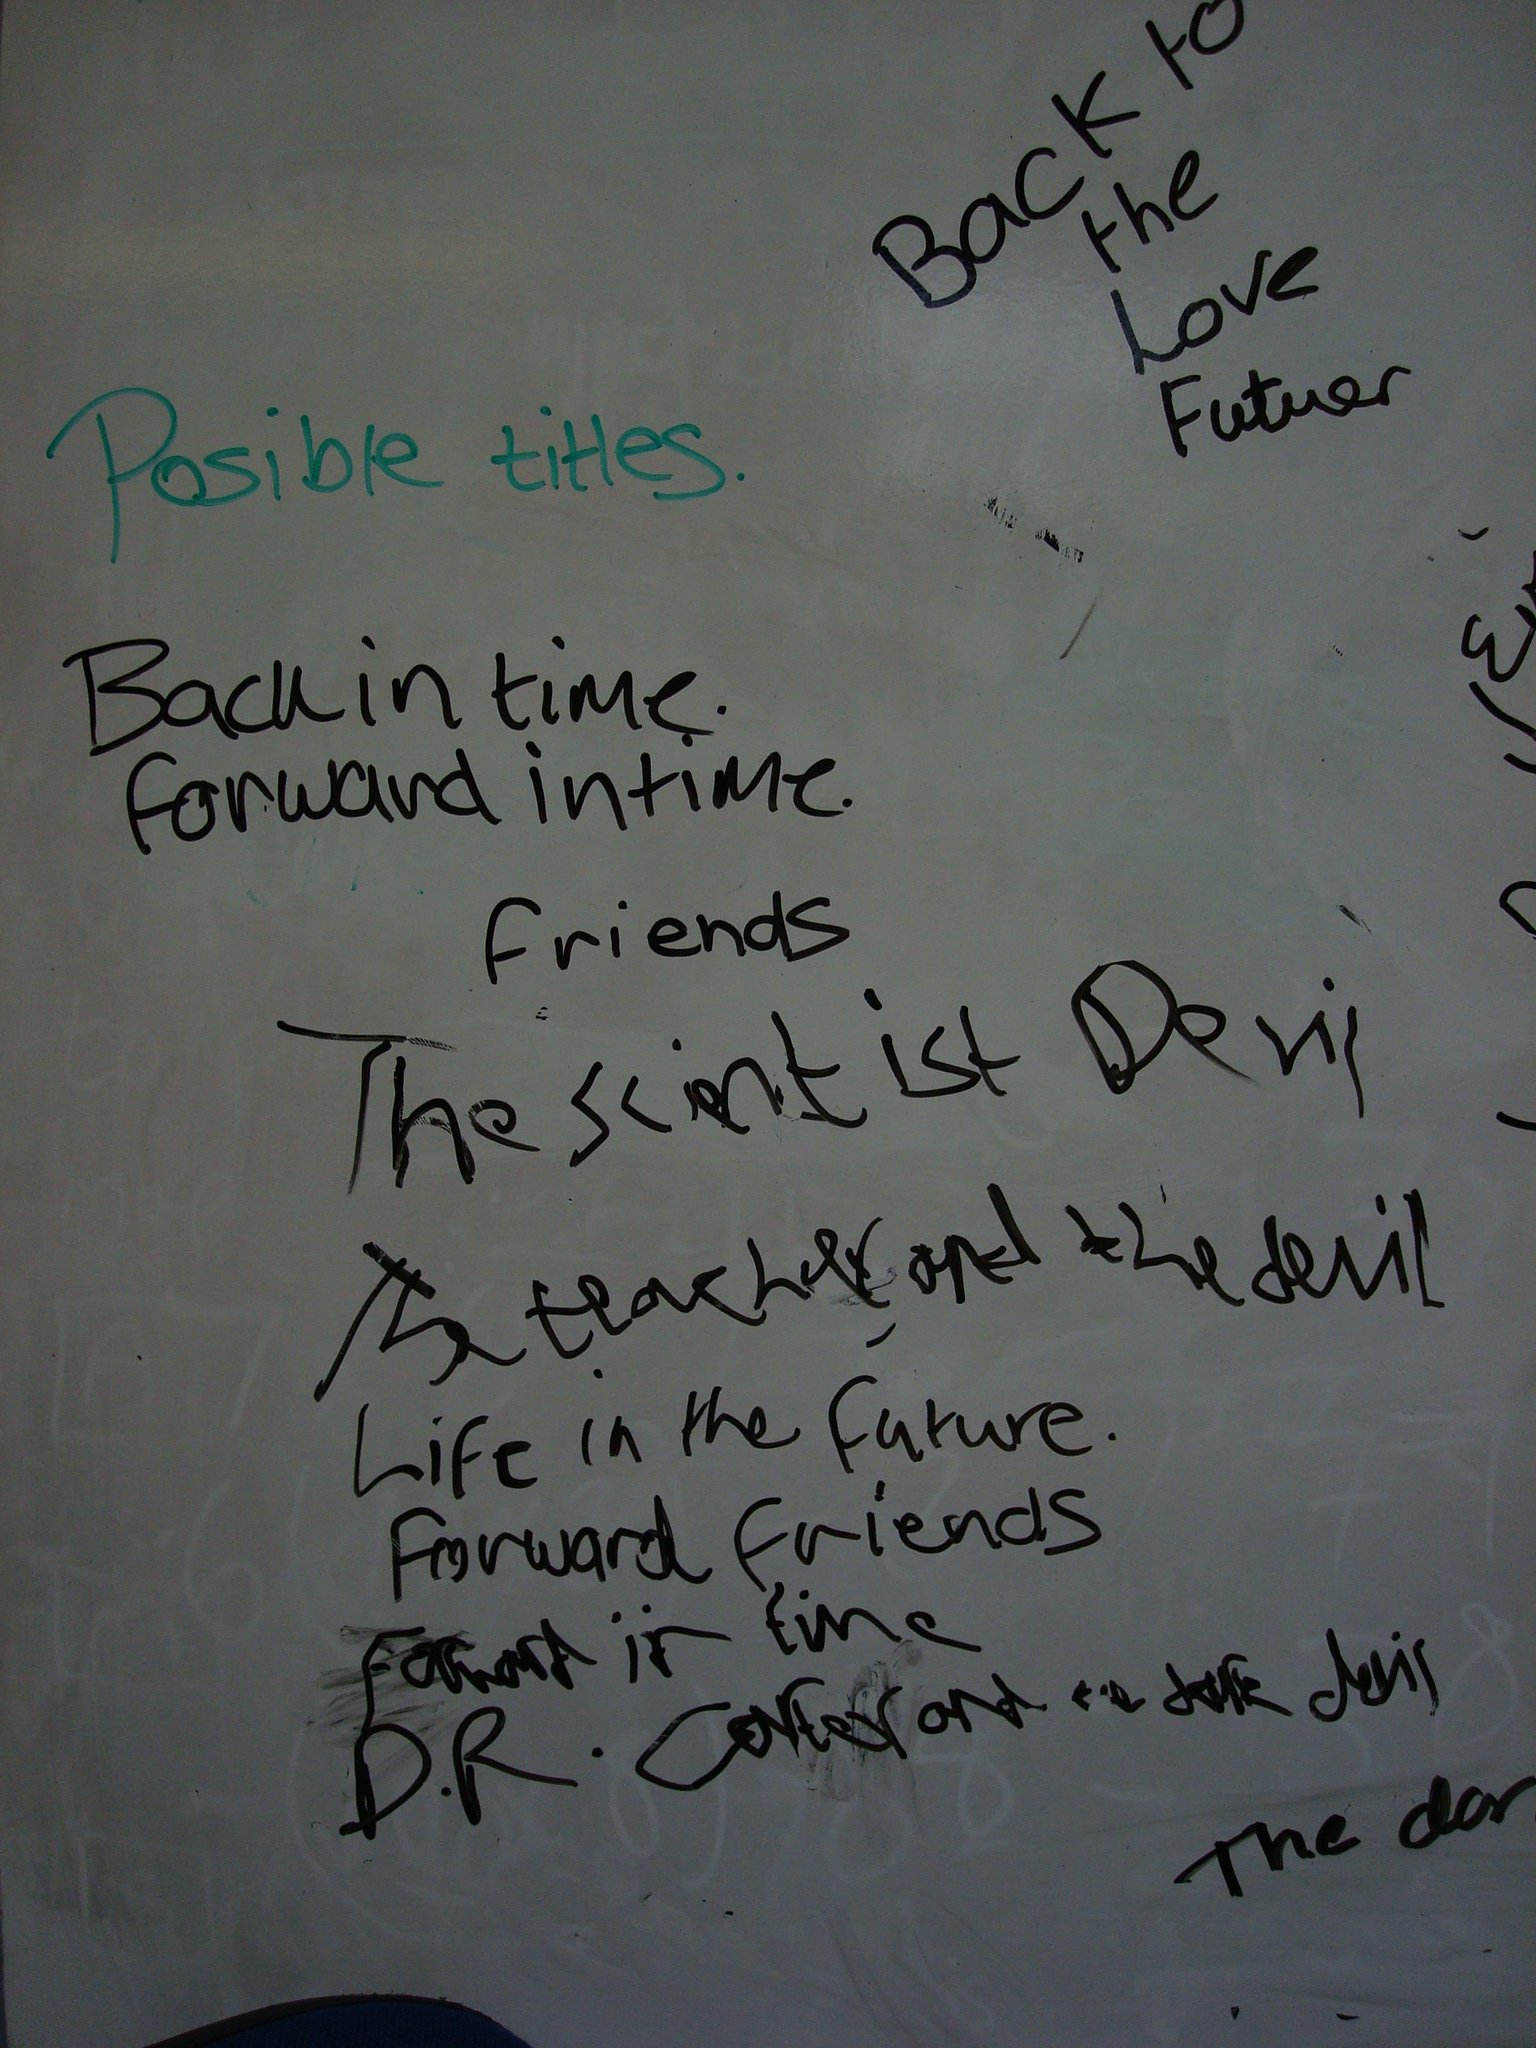 Back to
the
Love
Futuer
Posible titles.
Back in time.
forward in time.
friends
The scientist Devil
The teacher and the devil
Life in the future.
forward friends
Forward in time
D.R. and devil
The dar